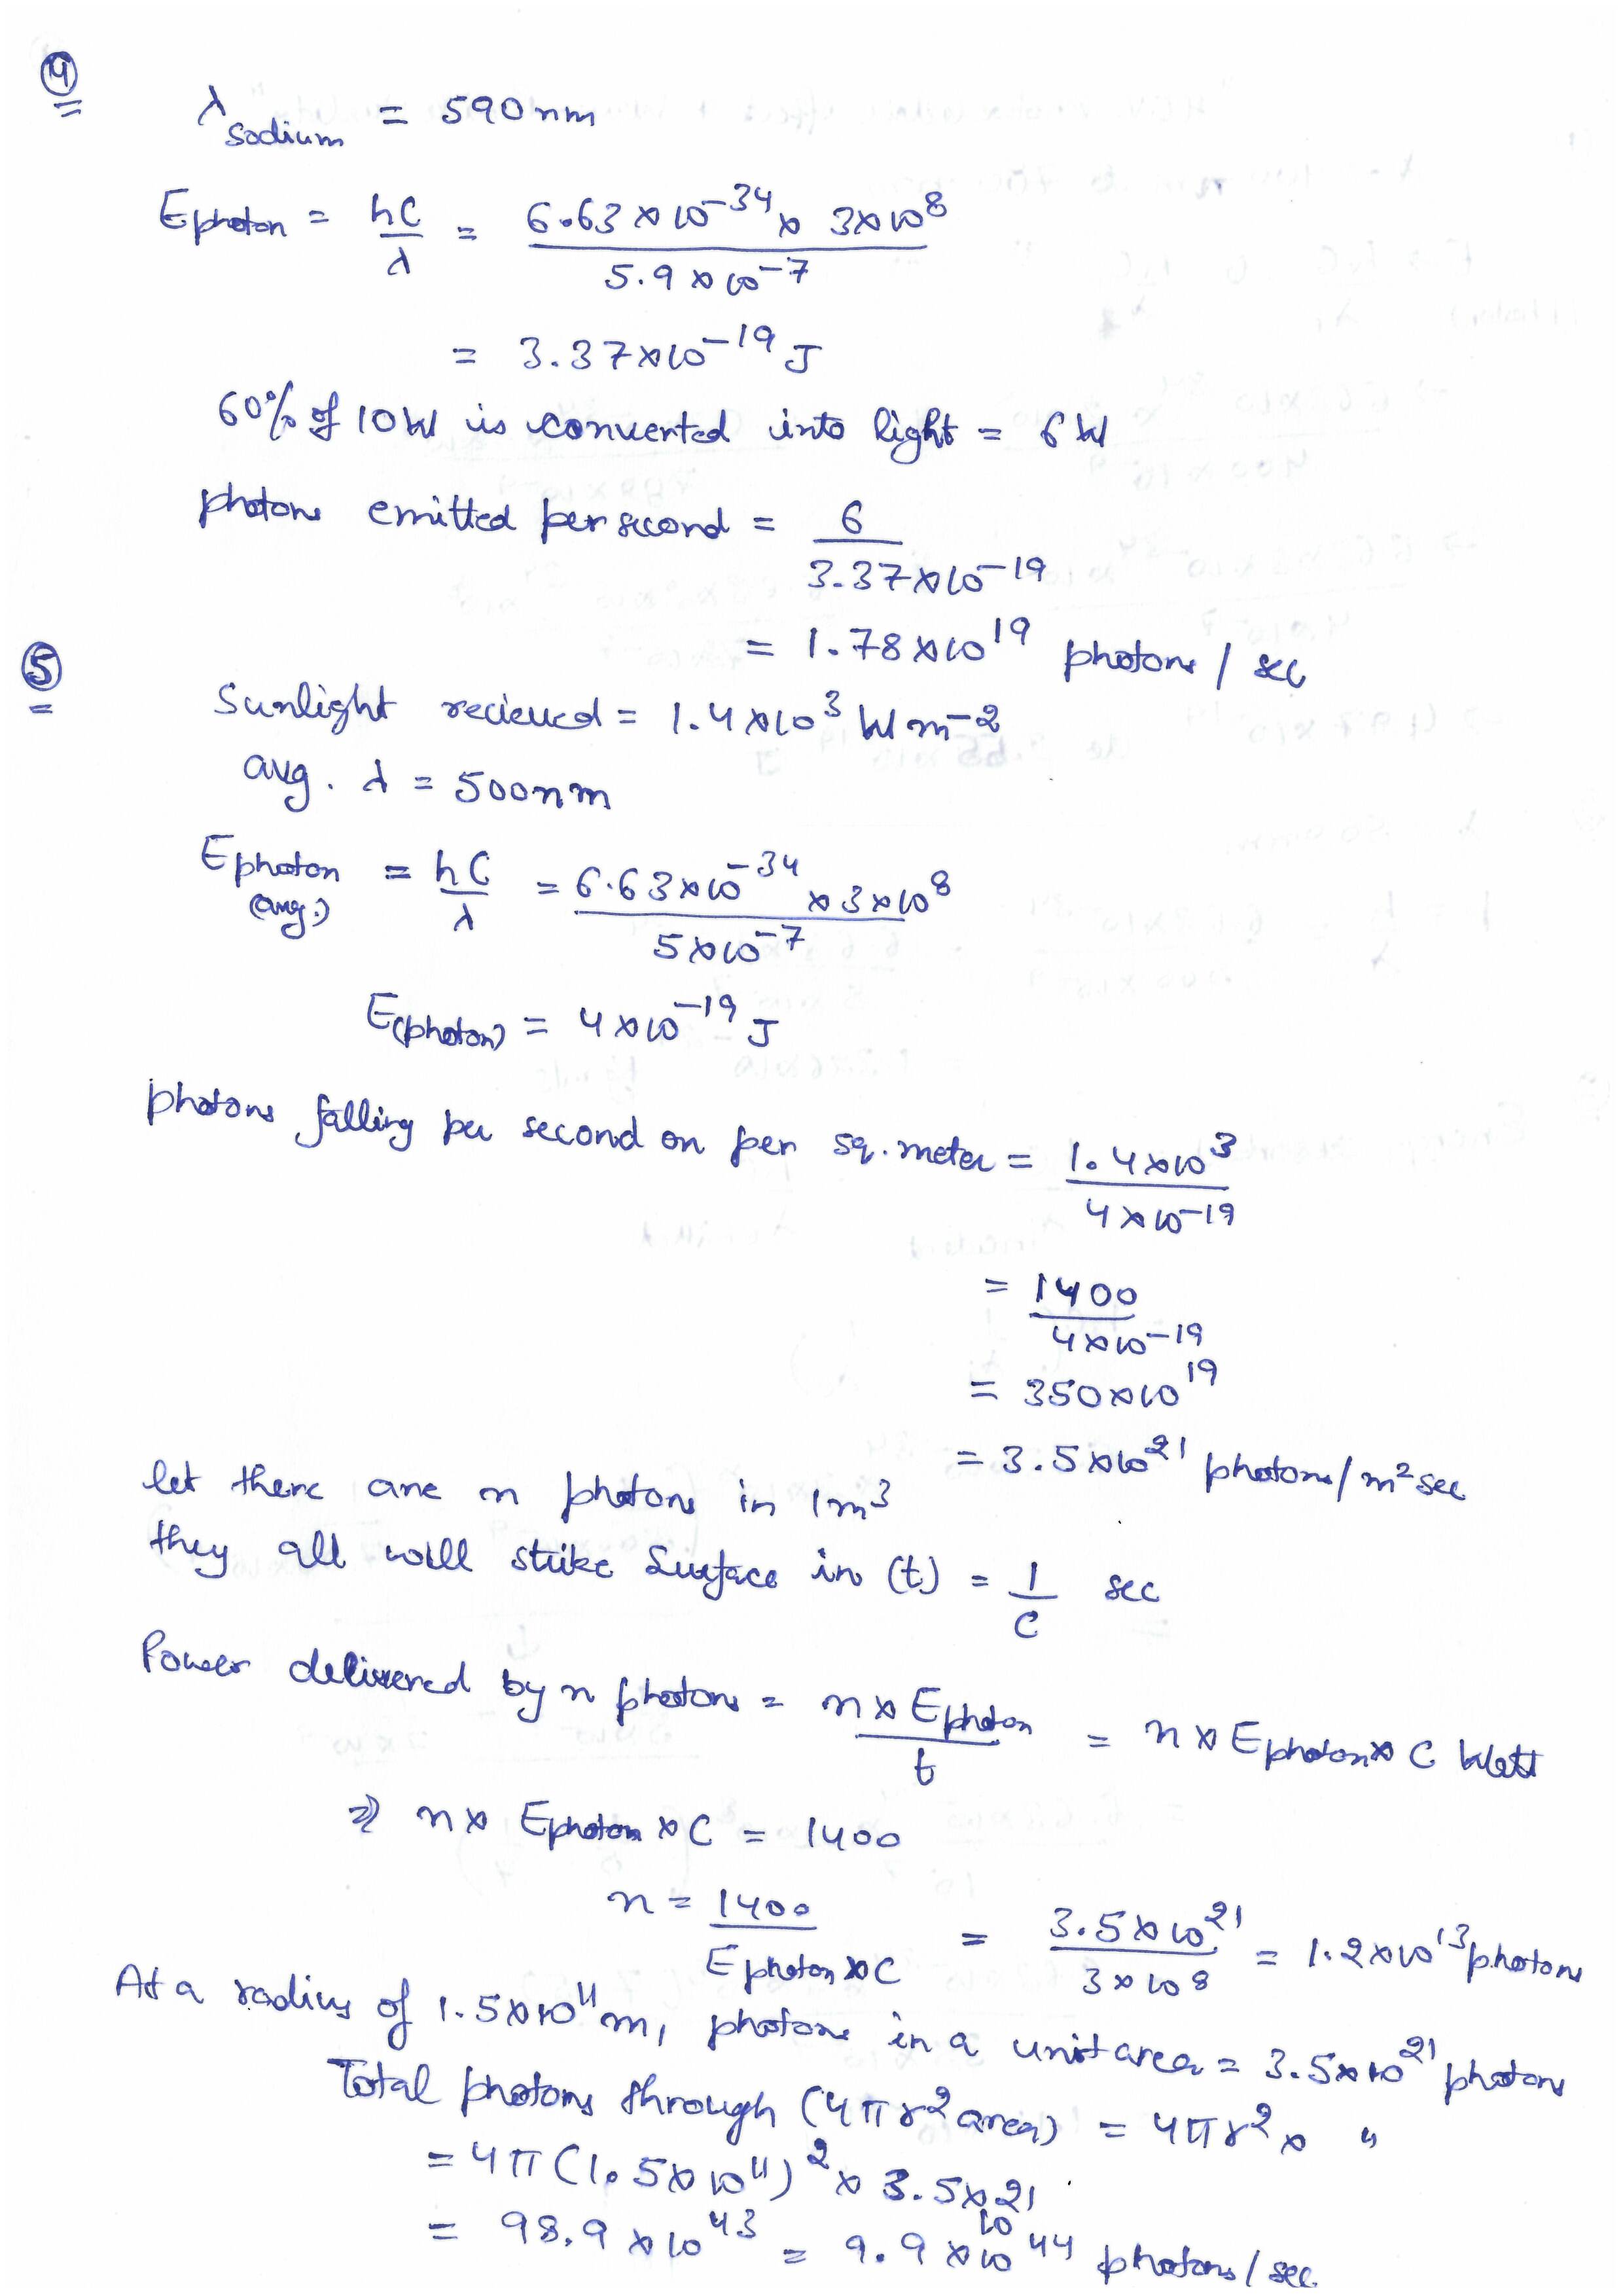 ④
λ sodium = 590nm
Ephoton = hC/λ = 6.63 × 10^-34 × 3×10^8 / 5.9 × 10^-7
= 3.37×10^-19 J
60% of 10W is converted into light = 6 W
photons emitted per second = 6 / 3.37×10^-19
= 1.78×10^19 photons / sec
⑤
Sunlight recieved = 1.4×10^3 W m^-2
avg. λ = 500nm
Ephoton (avg.) = hC/λ = 6.63×10^-34 × 3×10^8 / 5×10^-7
E(photon) = 4×10^-19 J
photons falling per second on per sq. meter = 1.4×10^3 / 4×10^-19
= 1400 / 4×10^-19
= 350×10^19
= 3.5×10^21 photons/m^2 sec
let there are n photons in 1m^3
they all will strike surface in (t) = 1/C sec
Power delivered by n photons = n×Ephoton / t = n×Ephoton×C Watt
⇒ n× Ephoton ×C = 1400
n = 1400 / Ephoton×C = 3.5×10^21 / 3×10^8 = 1.2×10^13 photons
At a radius of 1.5×10^11 m, photons in a unit area = 3.5×10^21 photons
Total photons through (4πr^2 area) = 4πr^2 × "
= 4π(1.5×10^11)^2 × 3.5×10^21
= 98.9 × 10^43 = 9.9 ×10^44 photons/sec